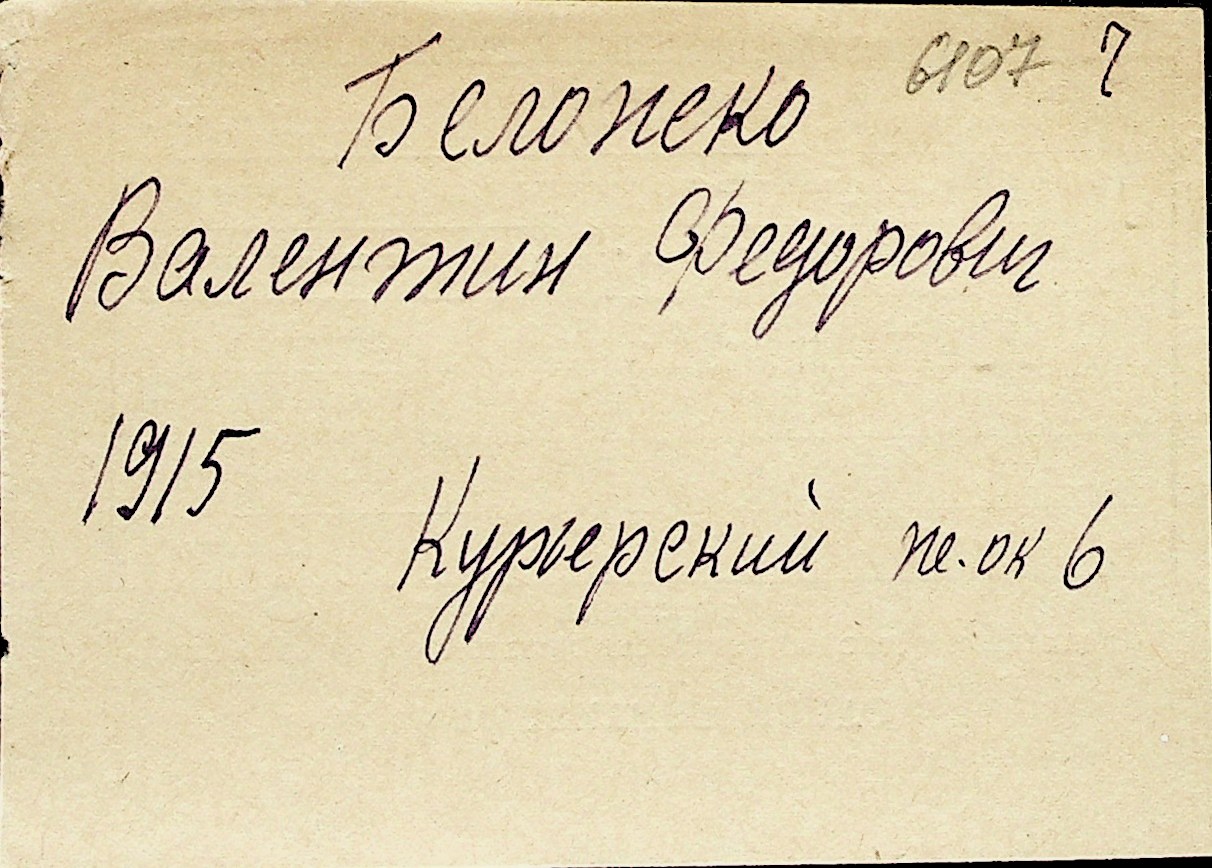 6107 7
Белопеко
Валентин Федорович
1915
Курьерский пе.ок 6